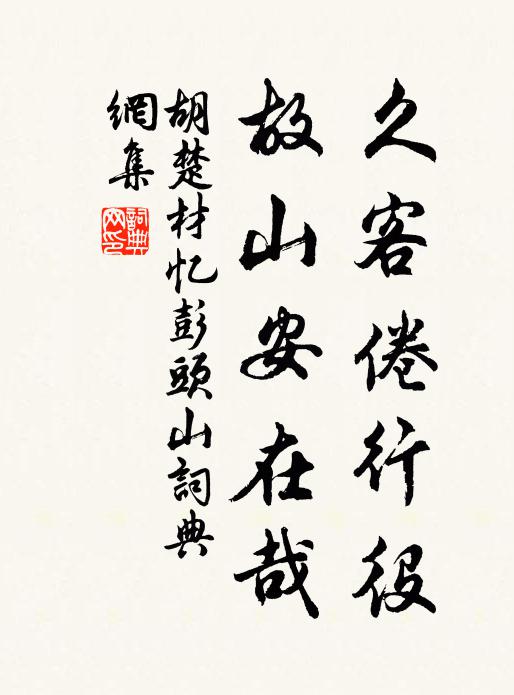 久客倦行役
故山安在哉
胡楚材忆彭頭山詞典
網集
詞典网印